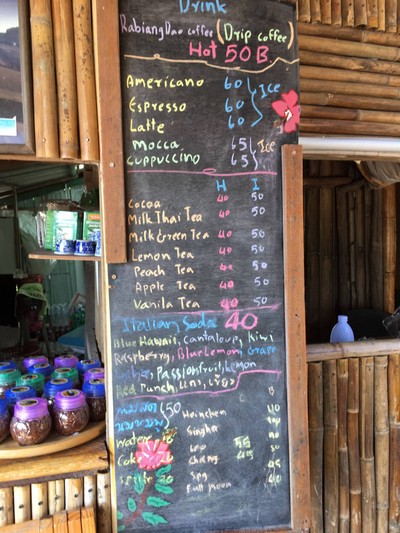 Drink
RabiangDao coffee (Drip coffee)
Hot 50 B
Americano 60
Espresso 60 Ice
Latte 60
Mocca 65 Ice
Cuppuccino 65
H I
Cocoa 40 50
Milk Thai Tea 40 50
Milk Green Tea 40 50
Lemon Tea 40 50
Peach Tea 40 50
Apple Tea 40 50
Vanila Tea 40 50
Italian Soda 40
Blue Hawaii, Cantaloup, Kiwi
Raspberry, Blue Lemon, Grape
Passionfruit, Lemon
Red Punch, แดง, เขียว
150 B
Heineken 110
Singha
Water
Leo 55
Coke Chang 45
Spy
Full moon